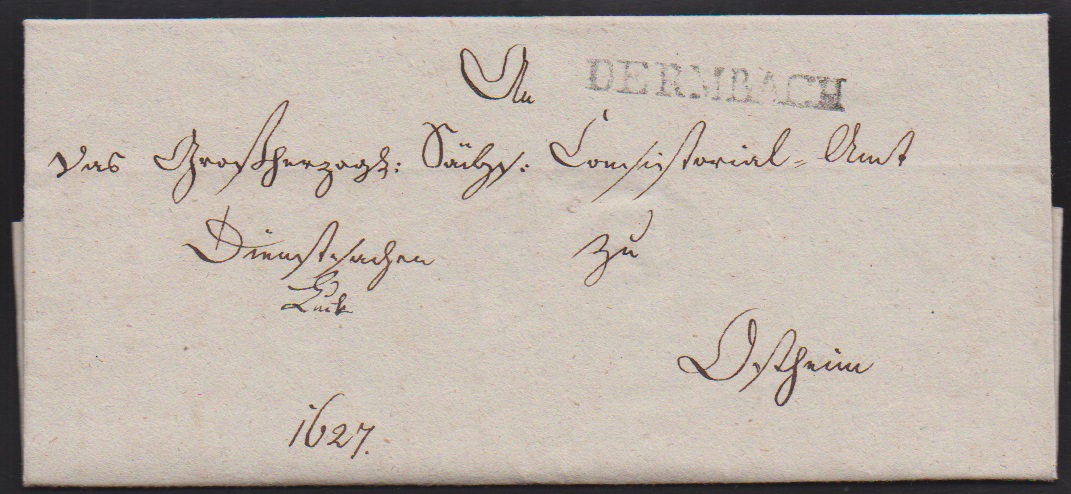 An
DERMBACH
das Großherzogl: Sächs: Consistorial-Amt
Dienstsachen zu
Ostheim
1627.